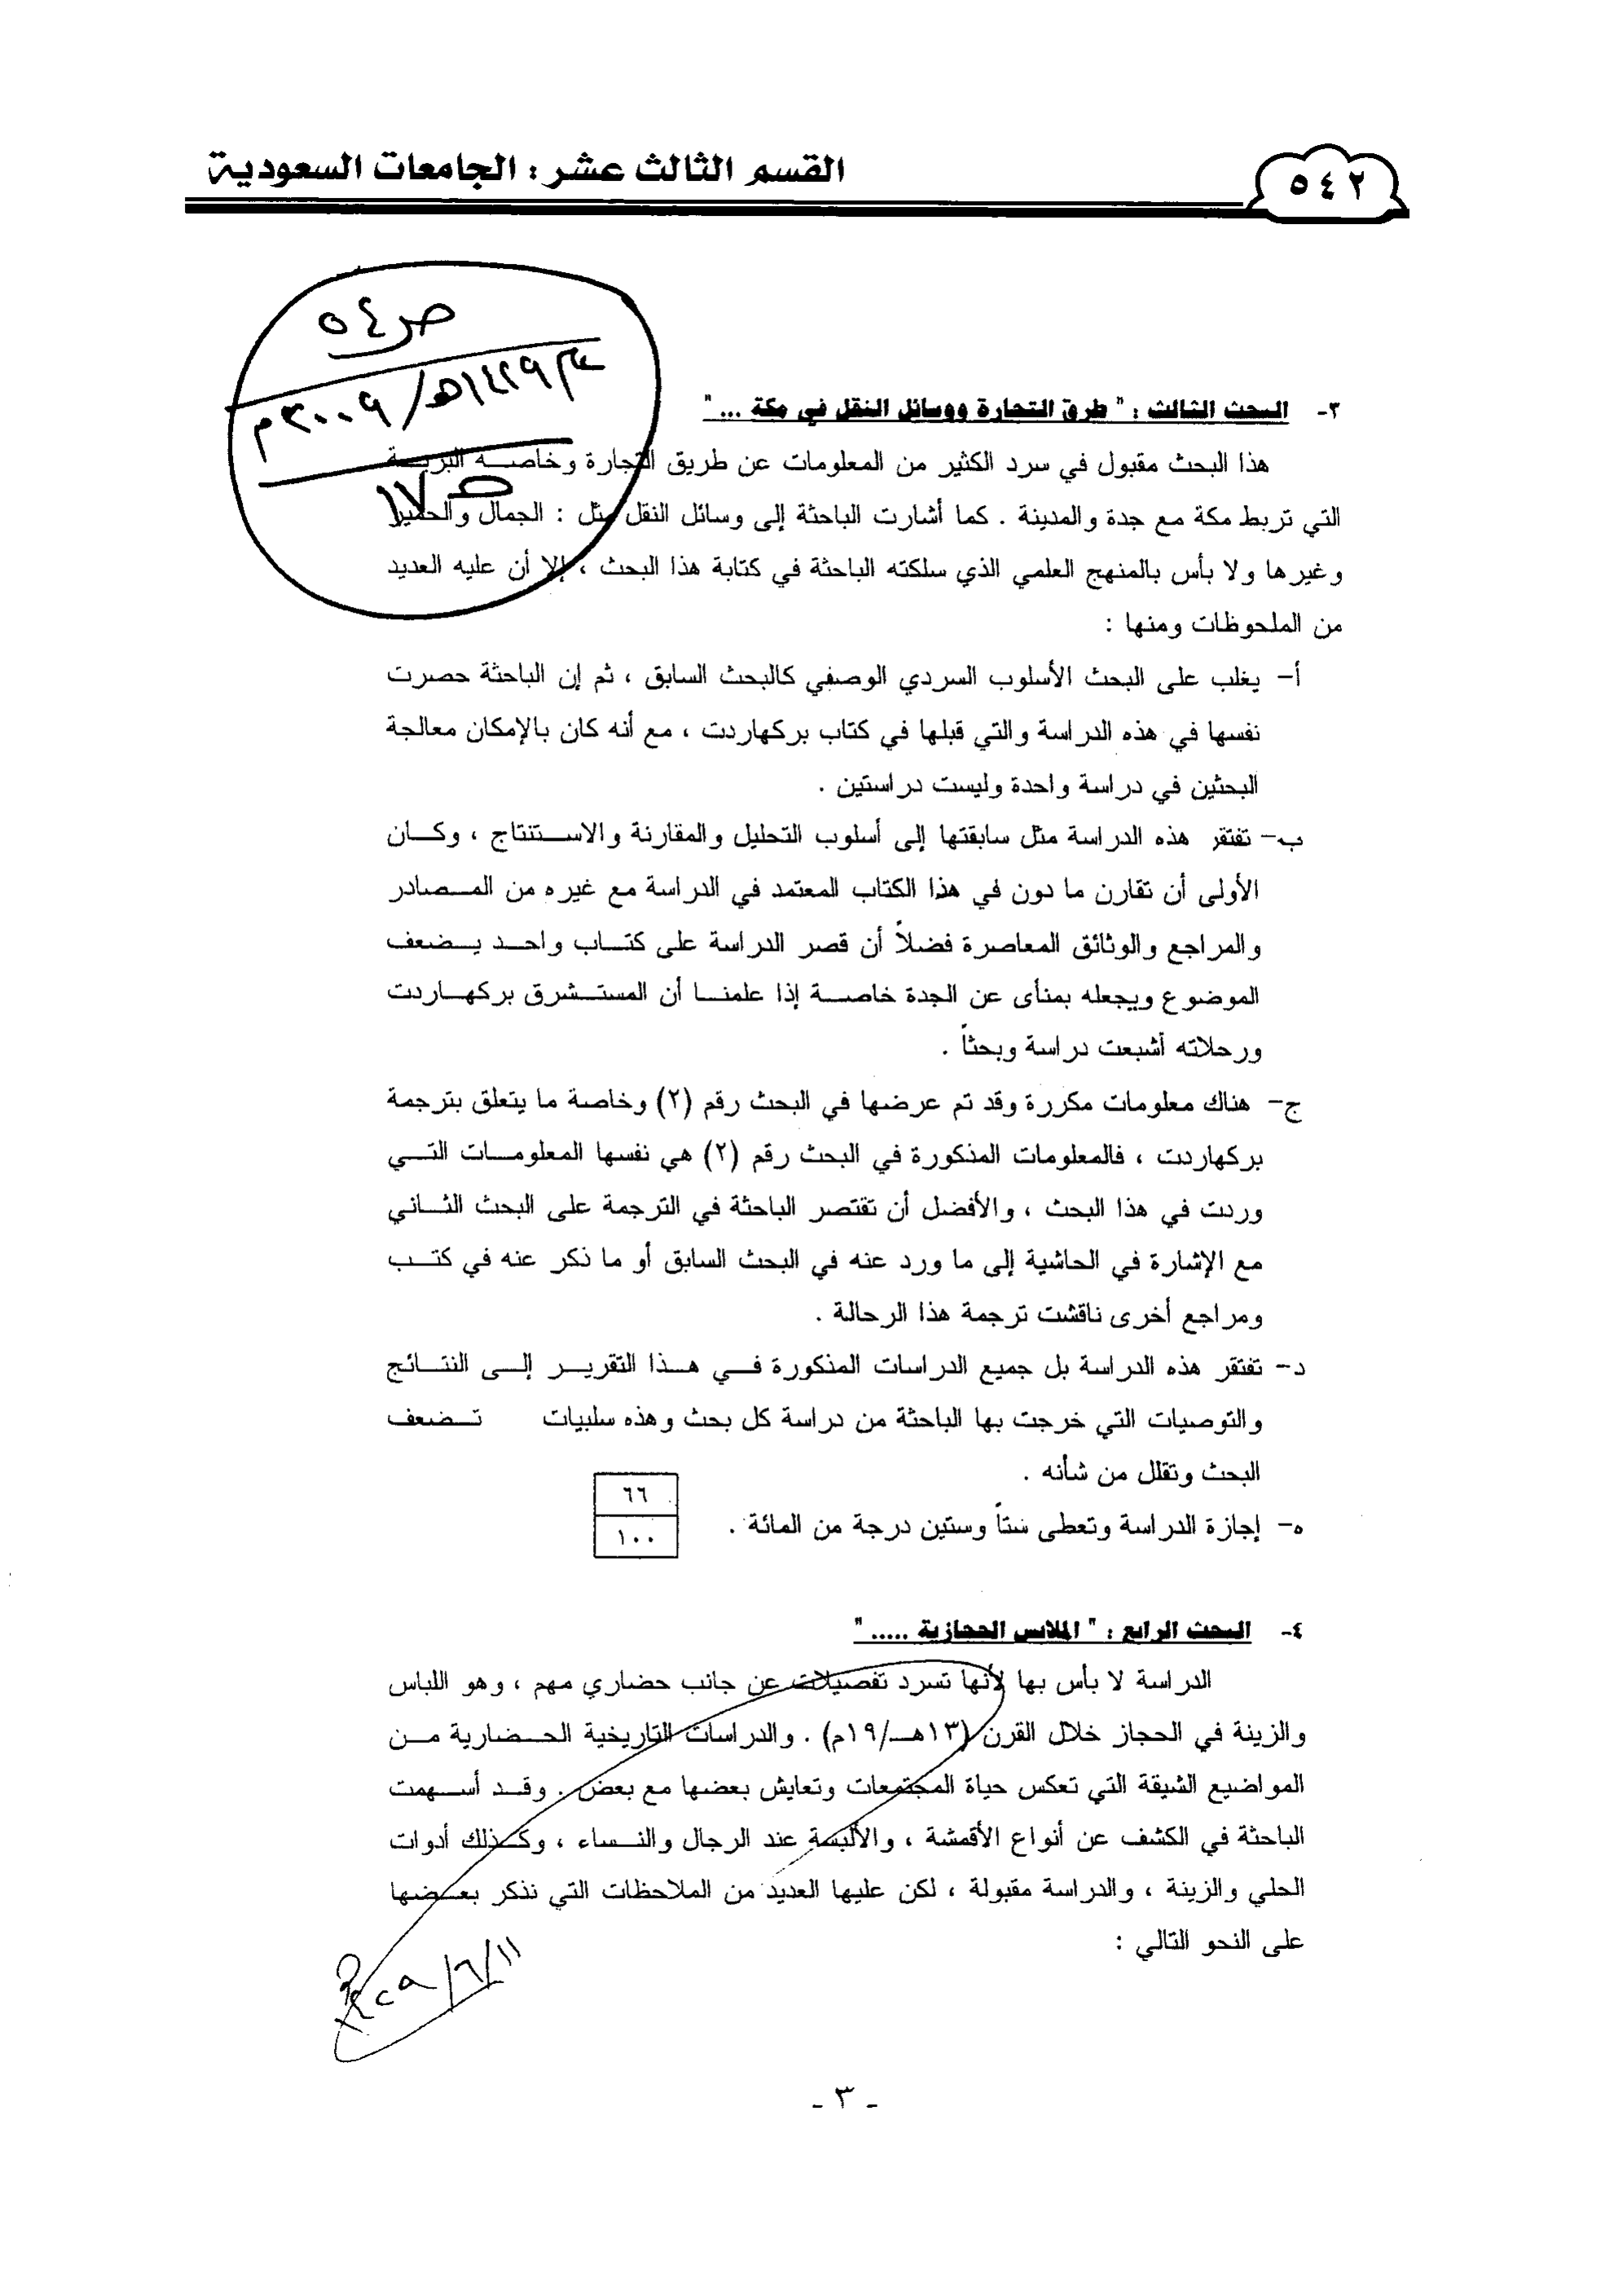 ٥٤٢
القسم الثالث عشر : الجامعات السعودية
ص ٥٤
١٤٢٩هـ / ٢٠٠٩م
ص ١٧
٣- البحث الثالث : " طرق التجارة ووسائل النقل في مكة ... "
هذا البحث مقبول في سرد الكثير من المعلومات عن طريق التجارة وخاصة البرية
التي تربط مكة مع جدة والمدينة . كما أشارت الباحثة إلى وسائل النقل مثل : الجمال والحمير
وغيرها ولا بأس بالمنهج العلمي الذي سلكته الباحثة في كتابة هذا البحث ، إلا أن عليه العديد
من الملحوظات ومنها :
أ- يغلب على البحث الأسلوب السردي الوصفي كالبحث السابق ، ثم إن الباحثة حصرت
نفسها في هذه الدراسة والتي قبلها في كتاب بركهاردت ، مع أنه كان بالإمكان معالجة
البحثين في دراسة واحدة وليست دراستين .
ب- تفتقر هذه الدراسة مثل سابقتها إلى أسلوب التحليل والمقارنة والاستنتاج ، وكان
الأولى أن تقارن ما دون في هذا الكتاب المعتمد في الدراسة مع غيره من المصادر
والمراجع والوثائق المعاصرة فضلاً أن قصر الدراسة على كتاب واحد يضعف
الموضوع ويجعله بمنأى عن الجدة خاصة إذا علمنا أن المستشرق بركهاردت
ورحلاته أشبعت دراسة وبحثاً .
ج- هناك معلومات مكررة وقد تم عرضها في البحث رقم (٢) وخاصة ما يتعلق بترجمة
بركهاردت ، فالمعلومات المذكورة في البحث رقم (٢) هي نفسها المعلومات التي
وردت في هذا البحث ، والأفضل أن تقتصر الباحثة في الترجمة على البحث الثاني
مع الإشارة في الحاشية إلى ما ورد عنه في البحث السابق أو ما ذكر عنه في كتب
ومراجع أخرى ناقشت ترجمة هذا الرحالة .
د- تفتقر هذه الدراسة بل جميع الدراسات المذكورة في هذا التقرير إلى النتائج
والتوصيات التي خرجت بها الباحثة من دراسة كل بحث وهذه سلبيات تضعف
البحث وتقلل من شأنه .
ه- إجازة الدراسة وتعطى ستاً وستين درجة من المائة .
٦٦
١٠٠
٤- البحث الرابع : " الملابس الحجازية ..... "
الدراسة لا بأس بها لأنها تسرد تفصيلات عن جانب حضاري مهم ، وهو اللباس
والزينة في الحجاز خلال القرن (١٣هـ/١٩م) . والدراسات التاريخية الحضارية من
المواضيع الشيقة التي تعكس حياة المجتمعات وتعايش بعضها مع بعض . وقد أسهمت
الباحثة في الكشف عن أنواع الأقمشة ، والألبسة عند الرجال والنساء ، وكذلك أدوات
الحلي والزينة ، والدراسة مقبولة ، لكن عليها العديد من الملاحظات التي نذكر بعضها
على النحو التالي :
- ٣ -